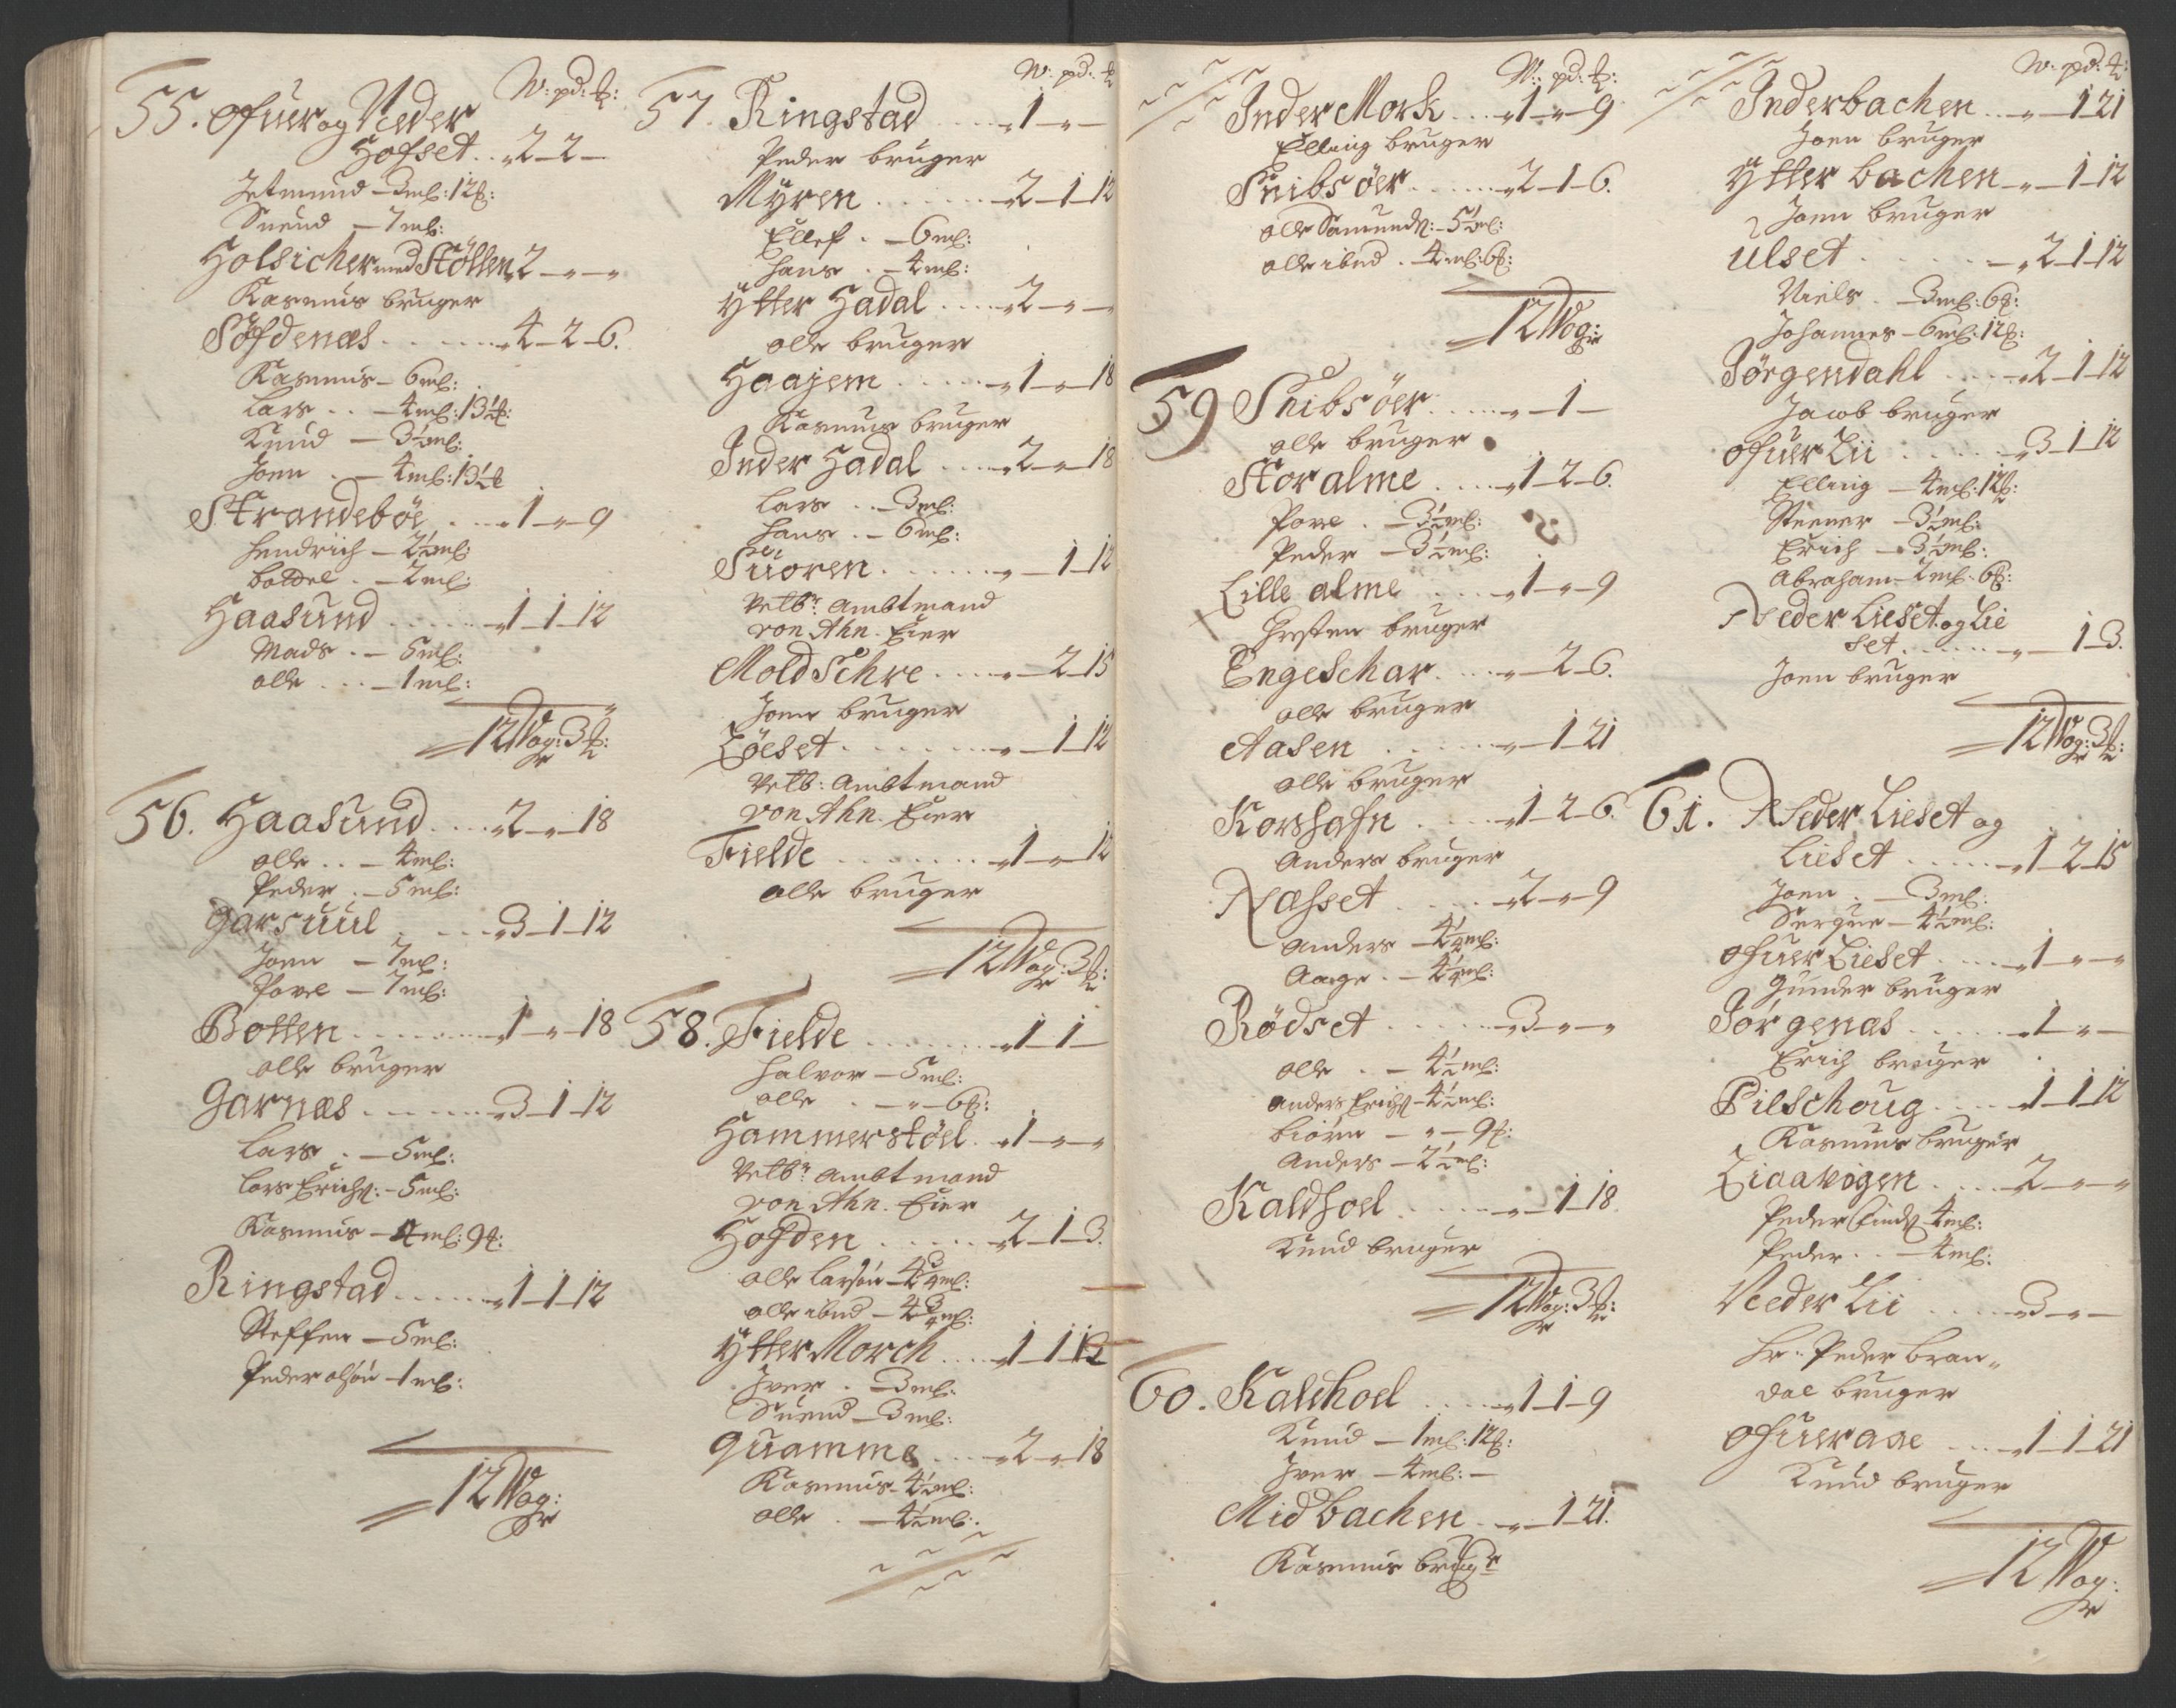 W: pd: ℔:
55. Ofuer og Neder
Hofset .. 2 - 2 -
Jetmund - 3 ml: 12 ℔:
Suend - 7 ml:
Holsicher med Støllen 2 - " - "
Rasmus bruger
Søfdenæs ..... 4 - 2 - 6.
Rasmus - 6 ml:
Lars .. - 4 ml: 13½ ℔:
Knud - 3½ ml:
Joen . - 4 ml: 13½ ℔
Strandebøe .... 1 - " - 9
Hendrich - 2½ ml:
Boldel . - 2 ml:
Haasund ..... 1 - 1 - 12
Mads . - 5 ml:
Olle ... - 1 ml:
12 Wog: 3 ℔:
56. Haasund .... 2 - " - 18
Olle .. - 4 ml:
Peder . - 5 ml:
Garsuul .... 3 - 1 - 12
Joen - 7 ml:
Povel - 7 ml:
Botten ....... 1 - " - 18
Olle bruger
Garnæs ...... 3 - 1 - 12
Lars . - 5 ml:
Lars Erichs: - 5 ml:
Rasmus - 4 ml: 9 ℔:
Ringstad ...... 1 - 1 - 12
Steffen - 5 ml:
Peder olsøn - 1 ml:
12 Wog:
W: pd: ℔
57. Ringstad .... 1 - " -
Peder bruger
Myren ...... 2 - 1 - 12
Ellef . - 6 ml:
Hans . - 4 ml:
Ytter Hadal .... 2 - " -
Olle bruger
Haajem ..... 1 - " - 18
Rasmus bruger
Inder Hadal .... 2 - " - 18
Lars .. - 3 ml:
Hans . - 6 ml:
Suoren ...... " - 1 - 12
Velb: Ambtmand
von Ahn. Eier
Mold Schre .... " - 2 - 15
Joen bruger
Løeset ....... " - 1 - 12
Velb: Ambtmand
von Ahn. Eier
Fielde ........ 1 - " - 12
Olle bruger
12 Wog: 3 ℔:
58. Fielde ........ 1 - 1 -
Halvor - 5 ml:
Olle . - " - 6 ℔:
Hammerstøel . 1 - " - "
Velb: Ambtmand
von Ahn. Eier
Hofden ..... 2 - 1 - 3.
Olle Larsøn - 4¾ ml:
Olle ibnd - 4¾ ml:
Ytter Morch .... 1 - 1 - 12
Iver . - 3 ml:
Suend - 3 ml:
Quamme .... 2 - " - 18
Rasmus - 4½ ml:
Olle . - 4½ ml:
W: pd: ℔:
Inder Mork ... 1 - " - 9
Elling bruger
Snibsøer ...... 2 - 1 - 6.
Olle Samunds: - 5½ ml:
Olle ibnd . 4 ml: 6 ℔:
12 Wog:
59 Snibsøer ..... " - 1 -
Olle bruger
Storalme .... 1 - 2 - 6.
Povel . - 3½ ml:
Peder - 3½ ml:
Lille alme .... 1 - " - 9
Chresten bruger
Engeschar .... " - 2 - 6.
Olle bruger
Aasen ..... " - 1 - 21
Olle bruger
Korshafn .... 1 - 2 - 6.
Anders bruger
Næsset .... 2 - " - 9
Anders - 4¼ ml:
Aage . - 4¼ ml:
Rødset ..... 3 - " - "
Olle .. - 4½ ml:
Anders Erichs - 4½ ml:
Biørn - " - 9 ℔:
Anders - 2½ ml:
Kaldhoel ..... " - 1 - 18.
Knud bruger
12 Wog: 3 ℔:
60. Kaldhoel .... 1 - 1 - 9
Knud - 1 ml: 12 ℔:
Iver - 4 ml: -
Midbachen . " - 1 - 21.
Rasmus brugr
W: pd: ℔:
Inderbachen .. " - 1 - 21
Joen bruger
Ytter bachen - " - 1 - 12
Joen bruger
Ulset ...... 2 - 1 - 12
Niels . - 3 ml: 6 ℔:
Johannes - 6 ml: 12 ℔:
Jørgendahl .... 2 - 1 - 12
Jacob bruger
Ofuer Lii ..... 3 - 1 - 12
Elling - 4 ml: 12 ℔:
Steener - 3½ ml:
Erich - 3½ ml:
Abraham - 2 ml: 6 ℔:
Neder Lieset og Lie
set ...... " - 1 - 3.
Joen bruger
12 Wog: 3 ℔:
61. Neder Lieset og
Lieset ..... 1 - 2 - 15
Joen . - 3 ml:
- 4½ ml:
Ofuer Lieset .... 1 - " - "
Gunder bruger
Jørgenæs ..... 1 - " -
Erich bruger
Pilschoug .... 1 - 1 - 12
Rasmus bruger
Liaavigen .... 2 - " - "
Peder 4 ml:
Peder .. - 4 ml:
Neder Lii .... 3 - " -
Hr: Peder Bran=
dal bruger
Ofueraae .... 1 - 1 - 21
Knud bruger
12 Wog: